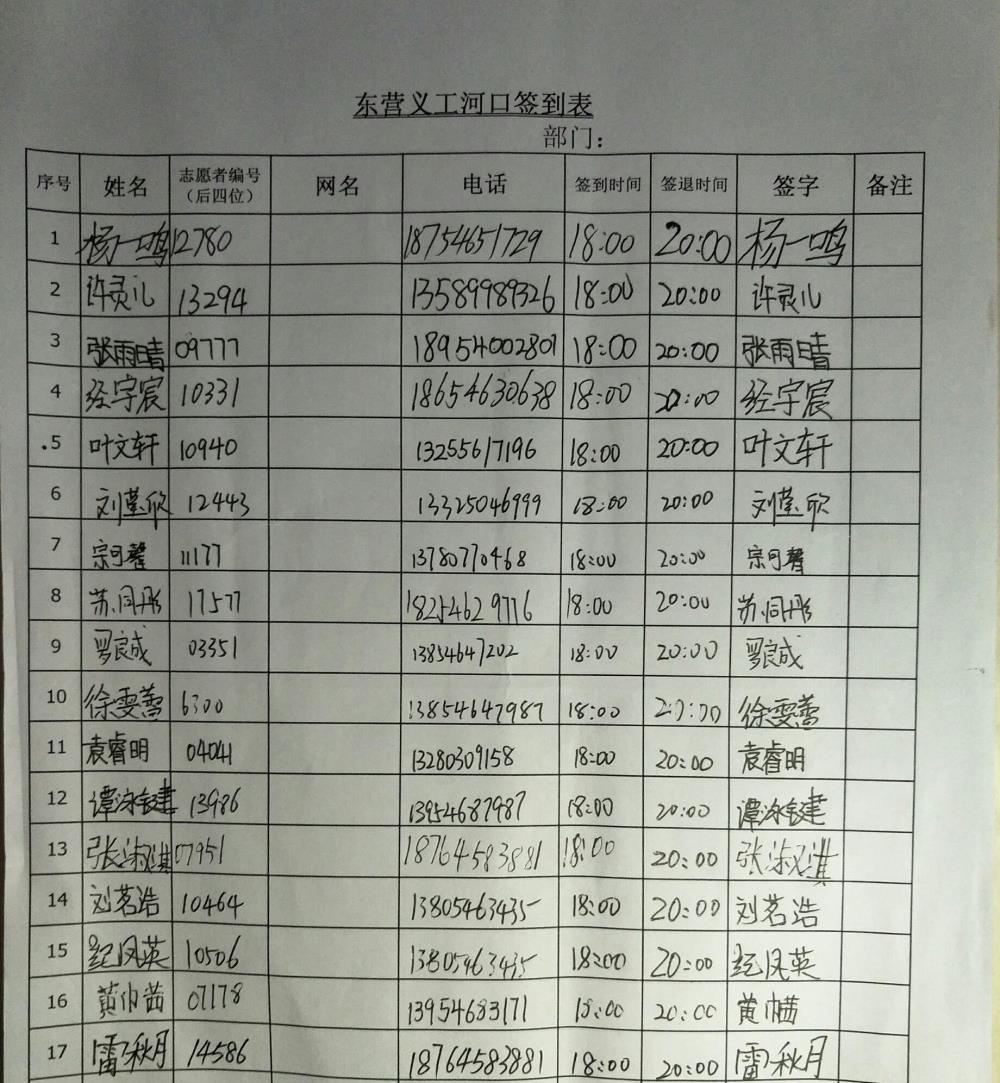 东营义工河口签到表
部门：
序号 姓名 志愿者编号（后四位） 网名 电话 签到时间 签退时间 签字 备注
1 杨一鸣 12780 18754651729 18:00 20:00 杨一鸣
2 许灵儿 13294 13589989326 18:00 20:00 许灵儿
3 张雨晴 09777 18954002801 18:00 20:00 张雨晴
4 经宇宸 10331 18654630638 18:00 20:00 经宇宸
.5 叶文轩 10940 13255617196 18:00 20:00 叶文轩
6 刘莹欣 12443 13325046999 18:00 20:00 刘莹欣
7 宗可馨 11177 13780770468 18:00 20:00 宗可馨
8 苏同彤 17577 18254629776 18:00 20:00 苏同彤
9 罗良成 03351 13854647202 18:00 20:00 罗良成
10 徐雯蕾 6300 13854647987 18:00 20:00 徐雯蕾
11 袁睿明 04041 13280309158 18:00 20:00 袁睿明
12 谭泳键 13986 13954687987 18:00 20:00 谭泳键
13 张淑淇 07951 18764583881 18:00 20:00 张淑淇
14 刘茗浩 10464 13805463435 18:00 20:00 刘茗浩
15 纪凤英 10506 13805463435 18:00 20:00 纪凤英
16 黄巾茜 07178 13954683171 18:00 20:00 黄巾茜
17 雷秋月 14586 18764583881 18:00 20:00 雷秋月